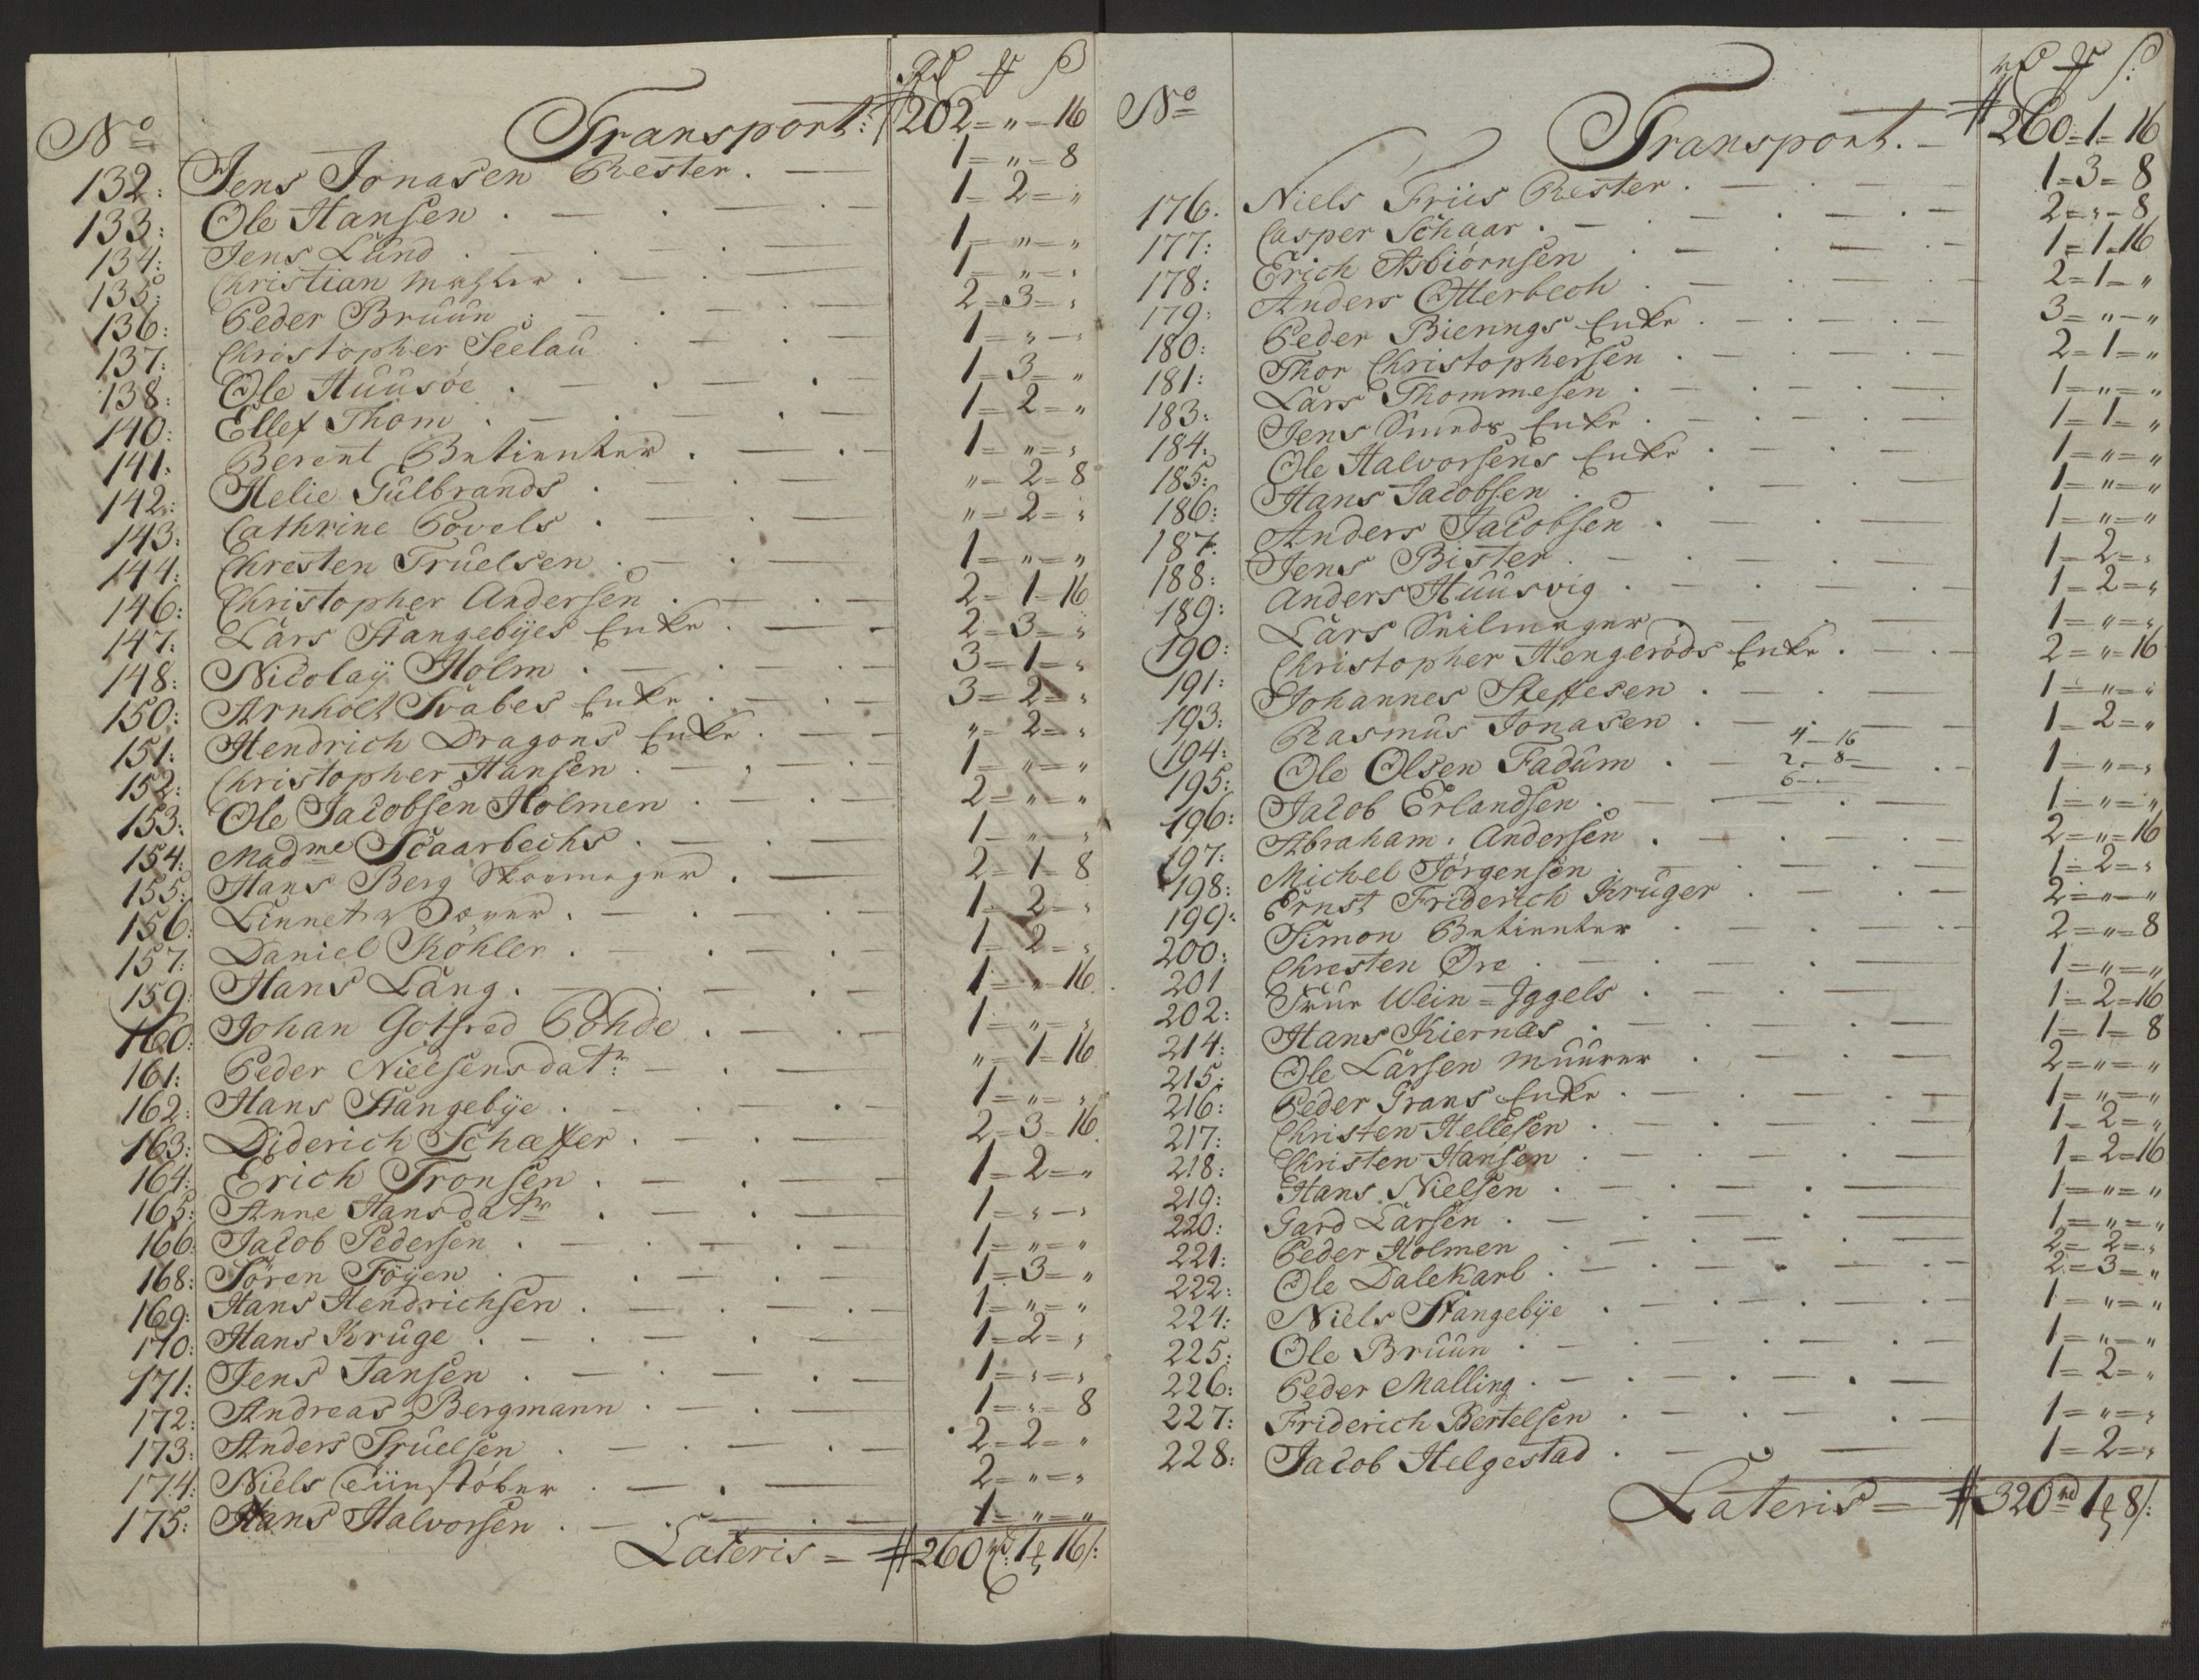 No
Transport: 202 = " = 16
132: Jens Jonasen Rester. 1 = " = 8
133: Ole Hansen. 1 = 2 = "
134: Jens Lund. 1 = " = "
135: Christian 1 = " = "
136: Peder Bruun. 2 = 3 = "
137: Christopher Seelau 1 = " = "
138: Ole Huusöe. 1 = 3 = "
140: Ellef Thom. 1 = 2 = "
141: Berent Betienter. 1 = " = "
142: Helie Gulbrands. " = 2 = 8
143: Cathrine Povels. " = 2 = "
144: Chresten Truelsen. 1 = " = "
146: Christopher Andersen. 2 = 1 = 16
147: Lars Stangebyes Enke. 2 = 3 = "
148: Nicolay Holm. 3 = 1 = "
150: Arnholt Svabes Enke. 3 = 2 = "
151: Hendrich Dragons Enke. " = 2 = "
152: Christopher Hansen. 1 = " = "
153: Ole Jacobsen Holmen. 2 = " = "
154: Madme Scaarbechs. 1 = " = "
155: Hans Berg Skoemager. 2 = 1 = 8
156: Linnet 1 = 2 = "
157: Daniel Köhler. 1 = 2 = "
159: Hans Lang. 1 = " = 16
160: Johan Gotfred Pöhde. 1 = " = "
161: Peder Nielsens datr: " = 1 = 16
162: Hans Stangebye. 1 = " = "
163: Diderich Schæffer. 2 = 3 = 16
164: Erich Tronsen. 1 = 2 = "
165: Anne Hansdatr. 1 = " = "
166: Jacob Pedersen. 1 = " = "
168: Sören Föyen. 1 = 3 = "
169: Hans Hendrichsen. 1 = " = "
170: Hans Kruge. 1 = 2 = "
171: Jens Jansen. 1 = " = "
172: Andreas Bergmann. 1 = " = 8
173: Anders Truelsen. 2 = 2 = "
174: Niels 2 = " = "
175: Hans Halvorsen. 1 = " = "
Lateris = 260 rd: 1 16 ß:
No
Transport. 260 = 1 = 16
176: Niels Friis Rester. 1 = 3 = 8
177: Casper Schaar. 2 = " = 8
178: Erich Asbiörnsen. 1 = 1 = 16
179: Anders Otterbech. 2 = 1 = "
180: Peder Bienngs Enke. 3 = " = "
181: Thor Christophersen. 2 = 1 = "
183: Lars Thommesen. 1 = " = "
184: Jens Smeds Enke. 1 = 1 = "
185: Ole Halvorsens Enke. 1 = " = "
186: Hans Jacobsen. 1 = " = "
187: Anders Jacobsen. 1 = " = "
188: Jens Bister. 1 = 2 = "
189: Anders Huusvig. 1 = 2 = "
190: Lars Seilmager. 1 = " = "
191: Christopher Hengeröds Enke. 2 = " = 16
193: Johannes Steffesen. 1 = " = "
194: Rasmus Jonasen. 1 = 2 = "
195: Ole Olsen Fadum. 1 = " = "
4 - 16
2 - 8
6 -
196: Jacob Erlandsen. 1 = " = "
197: Abraham: Andersen. 2 = " = 16
198: Michel Jörgensen. 1 = 2 = "
199: Ernst Friderich Kruger. 2 = " = "
200: Simon Betienter. 2 = " = 8
201 Chresten Öre. 1 = " = "
202: Frue Wein = Iggels. 1 = 2 = 16
214: Hans Kiernæs. 1 = 1 = 8
215: Ole Larsen Muurer. 2 = " = "
216: Peder Frans Enke. 1 = " = "
217: Christen Hellesen. 1 = 2 = "
218: Christen Hansen. 1 = 2 = 16
219: Hans Nielsen. 1 = " = "
220: Gard Larsen. 1 = " = "
221: Peder Holmen. 2 = 2 = "
222: Ole Dalekarl. 2 = 3 = "
224: Niels Stangebye. 1 = " = "
225: Ole Bruun. 1 = " = "
226: Peder Malling. 1 = 2 = "
227: Friderich Bertelsen. 1 = " = "
228: Jacob Helgestad. 1 = 2 = "
Lateris = 320 rd 1 8 ß: